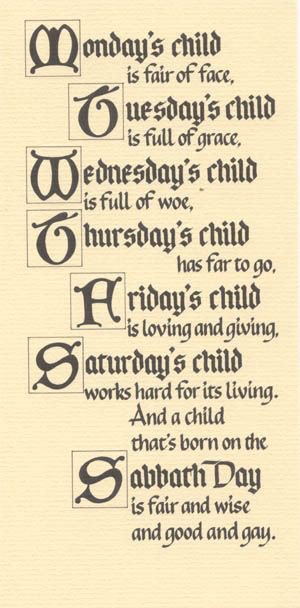 Monday's child
is fair of face,
Tuesday's child
is full of grace,
Wednesday's child
is full of woe,
Thursday's child
has far to go,
Friday's child
is loving and giving,
Saturday's child
works hard for its living.
And a child
that's born on the
Sabbath Day
is fair and wise
and good and gay.